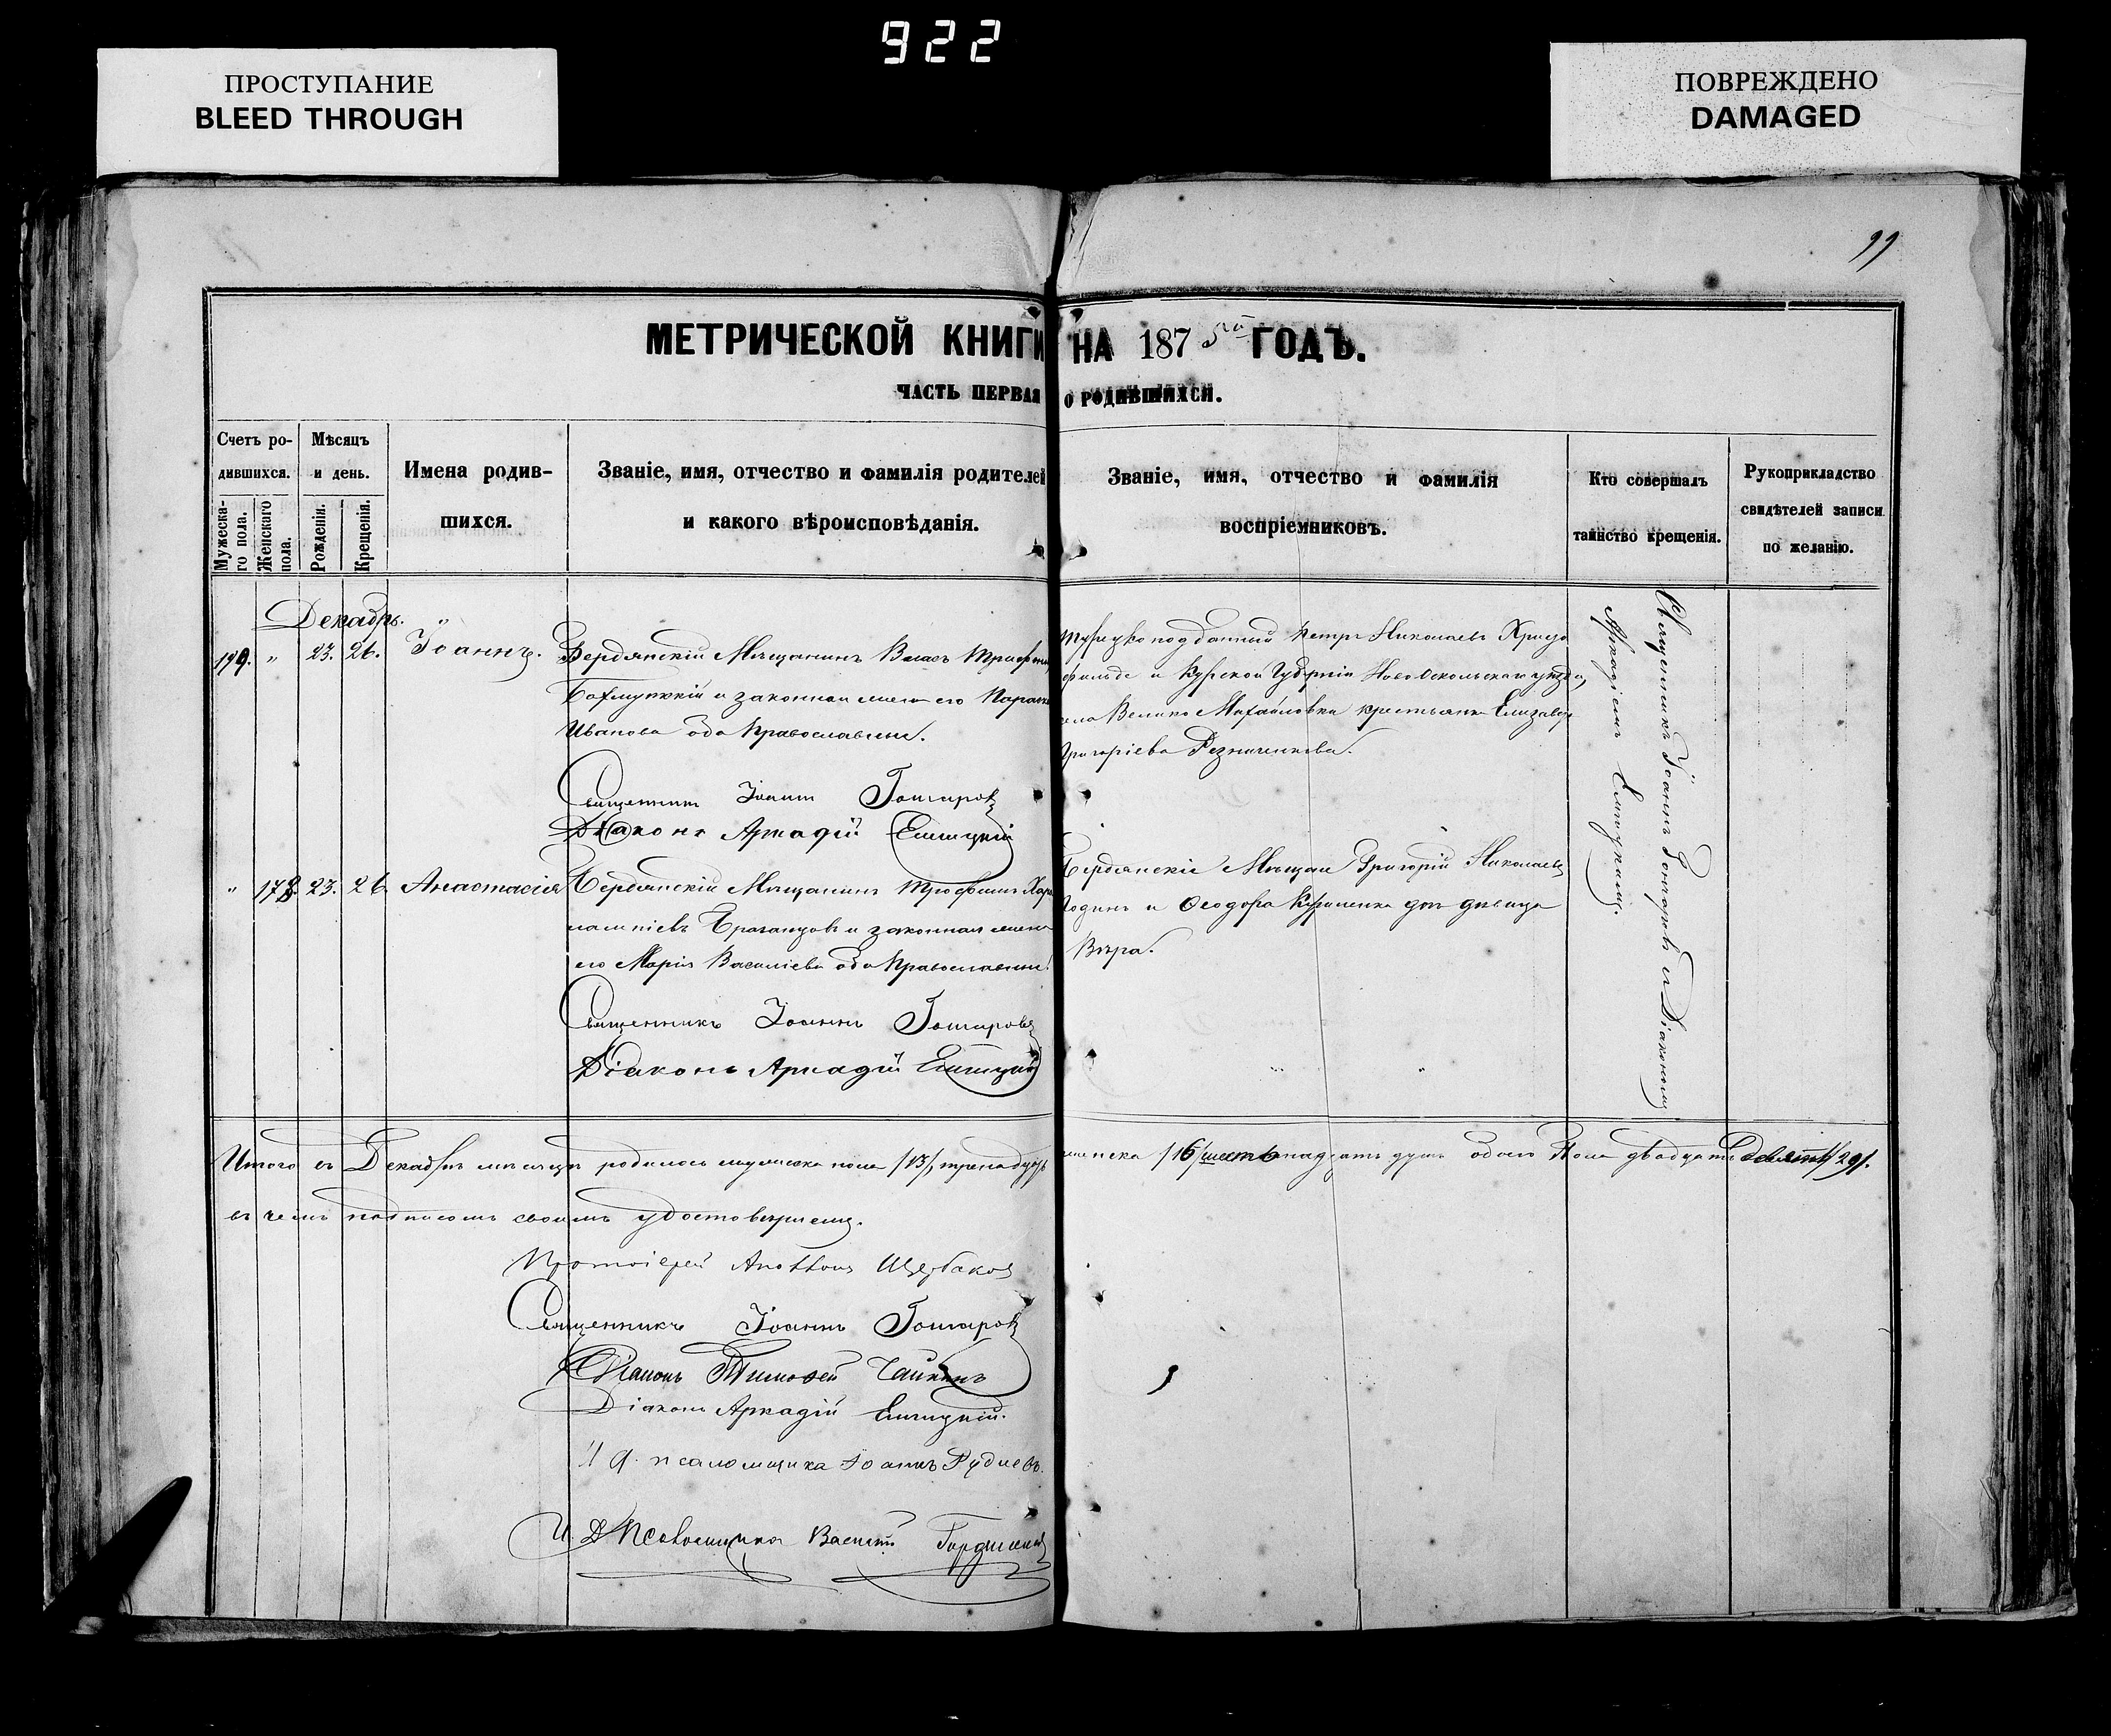 922
ПРОСТУПАНИЕ
BLEED THROUGH
ПОВРЕЖДЕНО
DAMAGED
99
МЕТРИЧЕСКОЙ КНИГИ НА 1875 ГОДЪ.
ЧАСТЬ ПЕРВАЯ О РОДИВШИХСЯ.
Счетъ ро-
дившихся.
Мужеска-
го пола.
Женскаго
пола.
Мѣсяцъ
и день.
Рожденія.
Крещенія.
Имена родив-
шихся.
Званіе, имя, отчество и фамилія родителей
и какого вѣроисповѣданія.
Званіе, имя, отчество и фамилія
воспріемниковъ.
Кто совершалъ
таинство крещенія.
Рукоприкладство
свидѣтелей записи
по желанію.
Декабрь.
199. " 23. 26. Іоаннъ.
Бердянскій Мѣщанинъ Власъ
и законная жена его
Иванова оба Православные.
Священникъ Іоаннъ Гончаровъ
Діаконъ Аркадій
Турецко подданный Петръ Николаевъ
и Курской Губерніи Ново Оскольскаго уѣзда,
Велико Михайловки крестьянка
Григоріева Резниченкова.
Священникъ Іоаннъ Гончаровъ и Діакономъ
Аркадіемъ
" 178. 23. 26 Анастасія
Бердянскій Мѣщанинъ Трофимъ
и законная жена
его Марія Василіева оба Православные.
Священникъ Іоаннъ Гончаровъ
Діаконъ Аркадій
Бердянскіе Мѣщане Григорій Николаевъ
и Ѳеодора дѣвица
Вѣра.
Итого въ Декабрѣ мѣсяцѣ родилось мужеска пола /13/ тринадцать
женска /16/ шестьнадцать душъ обоего Пола двадцать девять /29/.
въ чемъ подписомъ своимъ удостовѣряемъ.
Протоіерей Щербаковъ
Священникъ Іоаннъ Гончаровъ
Діаконъ Тимофей Чайкинъ
Діаконъ Аркадій
И д. псаломщика Іоаннъ Рудневъ.
И. Д Псаломщика Василій